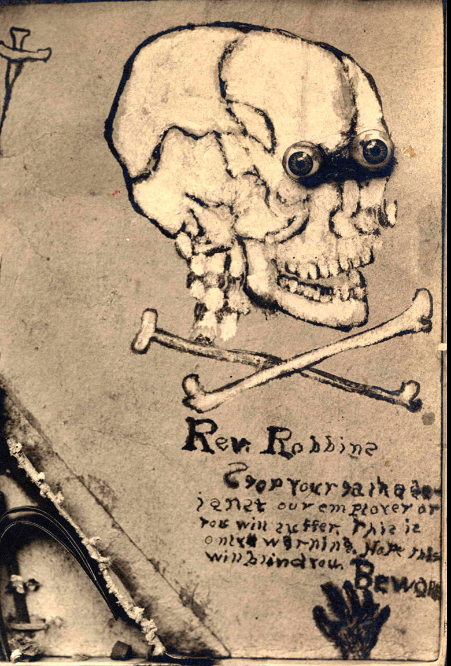 Rev. Robbins
Stop your
our employer or
you will suffer. This is
only warning. this
will blind you. Beware